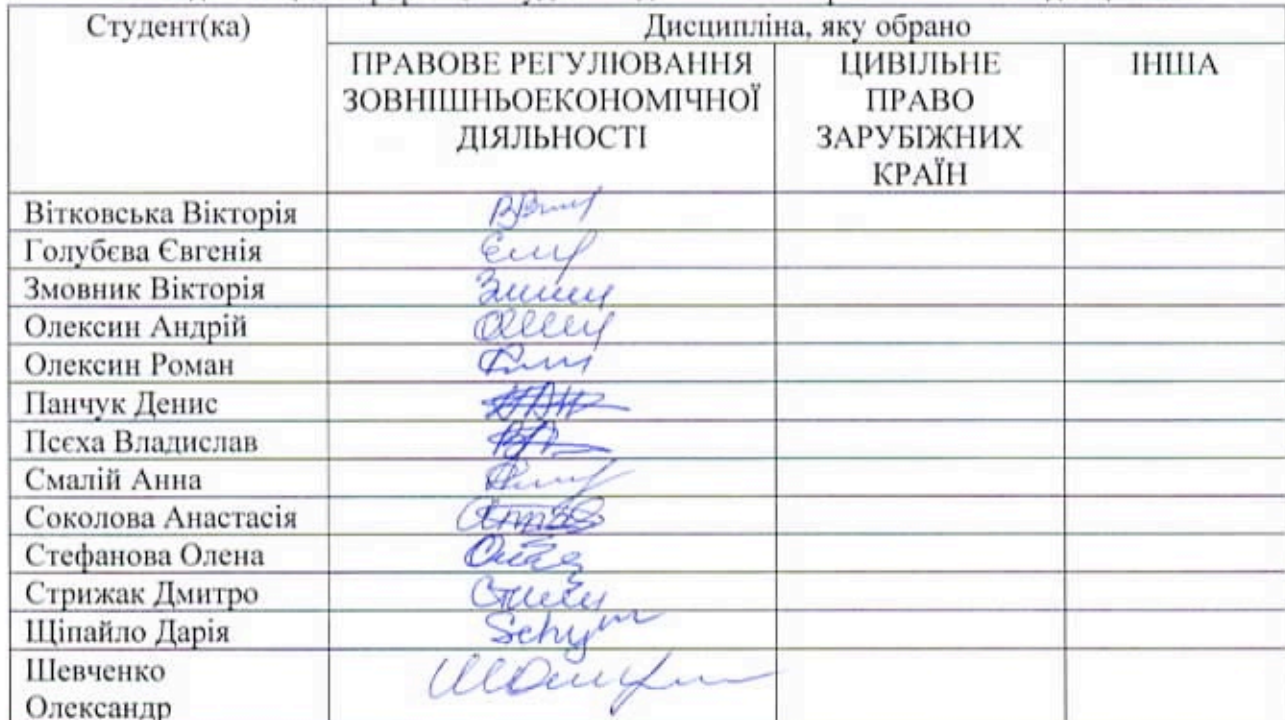 Студент(ка)
Дисципліна, яку обрано
ПРАВОВЕ РЕГУЛЮВАННЯ
ЗОВНІШНЬОЕКОНОМІЧНОЇ
ДІЯЛЬНОСТІ
ЦИВІЛЬНЕ
ПРАВО
ЗАРУБІЖНИХ
КРАЇН
ІНША
Вітковська Вікторія
Голубєва Євгенія
Змовник Вікторія
Олексин Андрій
Олексин Роман
Панчук Денис
Псєха Владислав
Смалій Анна
Соколова Анастасія
Стефанова Олена
Стрижак Дмитро
Щіпайло Дарія
Шевченко
Олександр